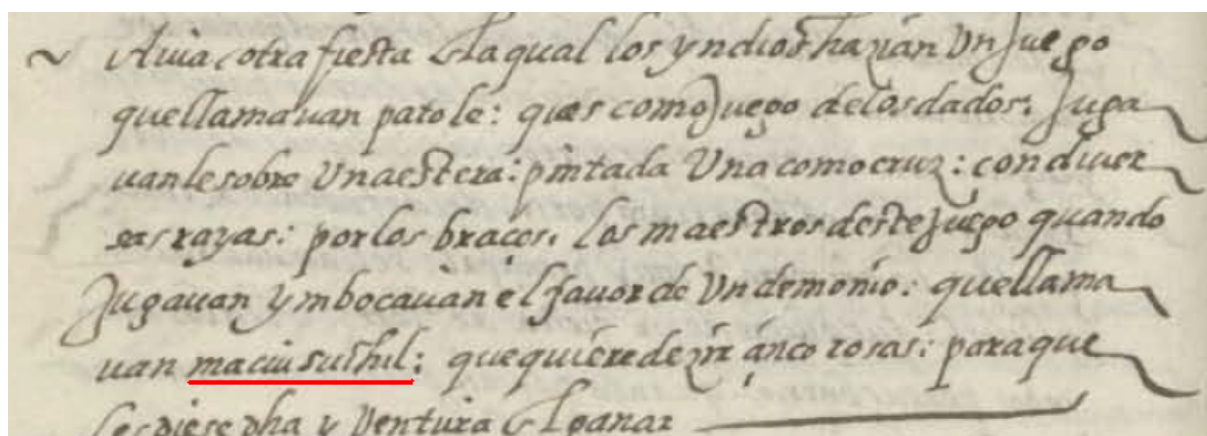 Auia otra fiesta en la qual los yndios hazian Vn juego
que llamauan patole: q̃ es como juego de los dados. juga
uanle sobre Vna estera: pintada Vna como cruz: con diuer
sas rayas: por los braços. los maestros deste juego quando
jugauan ymbocauan el fauor de Vn demonio: que llama
uan maciusuthil: que quiere dezir çinco rosas: para que
les diese dha y Ventura en ganar